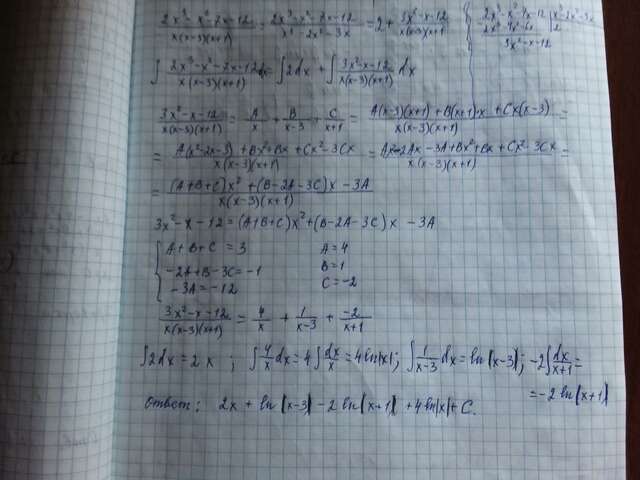 (2x³ - x² - 7x - 12)/(x(x-3)(x+1)) = (2x³ - x² - 7x - 12)/(x³ - 2x² - 3x) = 2 + (3x² - x - 12)/(x(x-3)(x+1))
2x³ - x² - 7x - 12 | x³ - 2x² - 3x
2x³ - 4x² - 6x | 2
3x² - x - 12
∫ (2x³ - x² - 7x - 12)/(x(x-3)(x+1)) dx = ∫ 2dx + ∫ (3x² - x - 12)/(x(x-3)(x+1)) dx
(3x² - x - 12)/(x(x-3)(x+1)) = A/x + B/(x-3) + C/(x+1) = (A(x-3)(x+1) + B(x+1)·x + Cx(x-3))/(x(x-3)(x+1)) =
= (A(x² - 2x - 3) + Bx² + Bx + Cx² - 3Cx)/(x(x-3)(x+1)) = (Ax² - 2Ax - 3A + Bx² + Bx + Cx² - 3Cx)/(x(x-3)(x+1)) =
= ((A+B+C)x² + (B-2A-3C)x - 3A)/(x(x-3)(x+1))
3x² - x - 12 = (A+B+C)x² + (B-2A-3C)x - 3A
A + B + C = 3 A = 4
-2A + B - 3C = -1 B = 1
-3A = -12 C = -2
(3x² - x - 12)/(x(x-3)(x+1)) = 4/x + 1/(x-3) + -2/(x+1)
∫2dx = 2x ; ∫ 4/x dx = 4∫ dx/x = 4 ln|x| ; ∫ 1/(x-3) dx = ln|x-3| ; -2∫ dx/(x+1) =
= -2 ln|x+1|
Ответ: 2x + ln|x-3| - 2 ln|x+1| + 4 ln|x| + C.